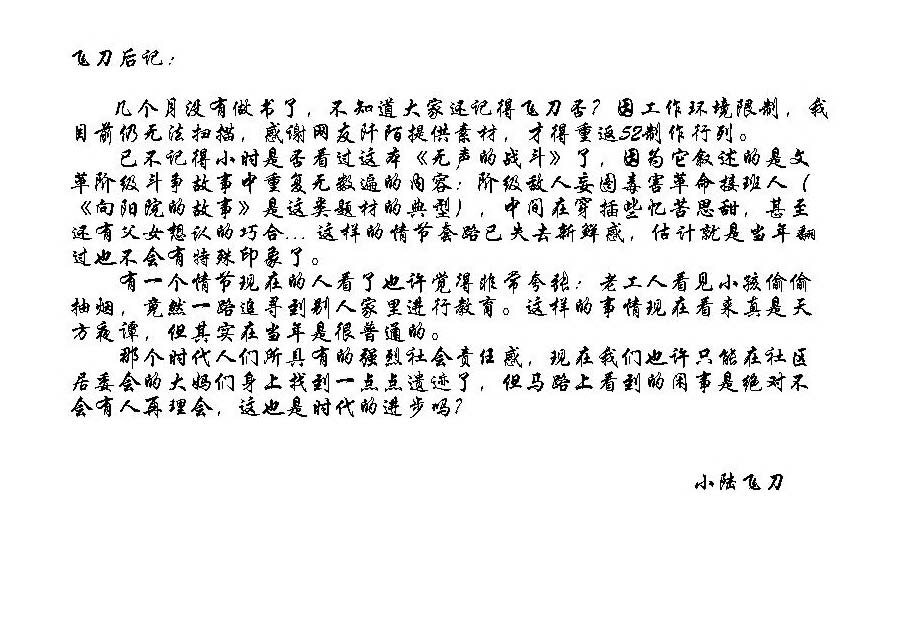 飞刀后记：
几个月没有做书了，不知道大家还记得飞刀否？因工作环境限制，我
目前仍无法扫描，感谢网友阡陌提供素材，才得重返52制作行列。
已不记得小时是否看过这本《无声的战斗》了，因为它叙述的是文
革阶级斗争故事中重复无数遍的内容：阶级敌人妄图毒害革命接班人（
《向阳院的故事》是这类题材的典型），中间在穿插些忆苦思甜，甚至
还有父女想认的巧合...这样的情节套路已失去新鲜感，估计就是当年翻
过也不会有特殊印象了。
有一个情节现在的人看了也许觉得非常夸张：老工人看见小孩偷偷
抽烟，竟然一路追寻到别人家里进行教育。这样的事情现在看来真是天
方夜谭，但其实在当年是很普通的。
那个时代人们所具有的强烈社会责任感，现在我们也许只能在社区
居委会的大妈们身上找到一点点遗迹了，但马路上看到的闲事是绝对不
会有人再理会，这也是时代的进步吗？
小陆飞刀